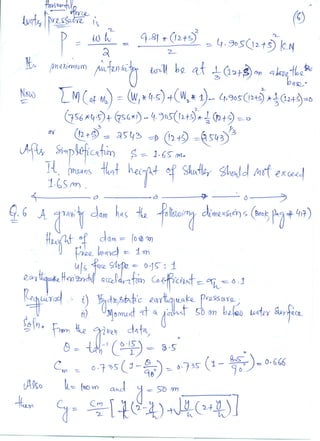 Horizontal force
water pressure is
(6)
P = wh²/2 = 9.81*(12+S)²/2 = 4.905(12+S)² K.N
Its maximum intensity will be at 1/3(12+S) m above the base.
Now ΣM(at M₂) = (W₁*4.5)+(W₂*1) - 4.905(12+S)²*1/3(12+S)=0
(756*4.5)+(756*1) - 4.905(12+S)²*1/3(12+S)=0
or (12+S)³ = 2543 ⇒ (12+S)=(2543)^1/3
After Simplification S = 1.65 m.
It means that height of Shutter should not exceed
1.65 m.
Q.6 A gravity dam has the following dimensions (Book, pag # 417)
Height of dam = 100 m
free board = 1 m
u/s face slope = 0.15 : 1
earthquake Horizontal acceleration Coefficient = αₕ = 0.1
Required i) Hydrostatic earthquake Pressure,
ii) Moment at a joint 50 m below water surface
Soln. From the given data,
θ = tan⁻¹(0.15/1) = 8.5°
Cm = 0.735(1 - θ/90°) = 0.735(1 - 8.5°/90°) = 0.666
Also h = 100 m and y = 50 m
then Cy = Cm/2 [y/h(2-y/h) + √(y/h(2+y/h))]